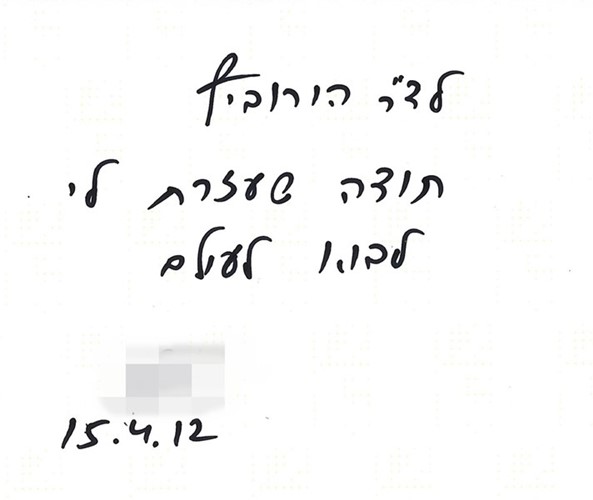 לד"ר הורוביץ
תודה שעזרת לי
לבוא לעולם
15.4.12